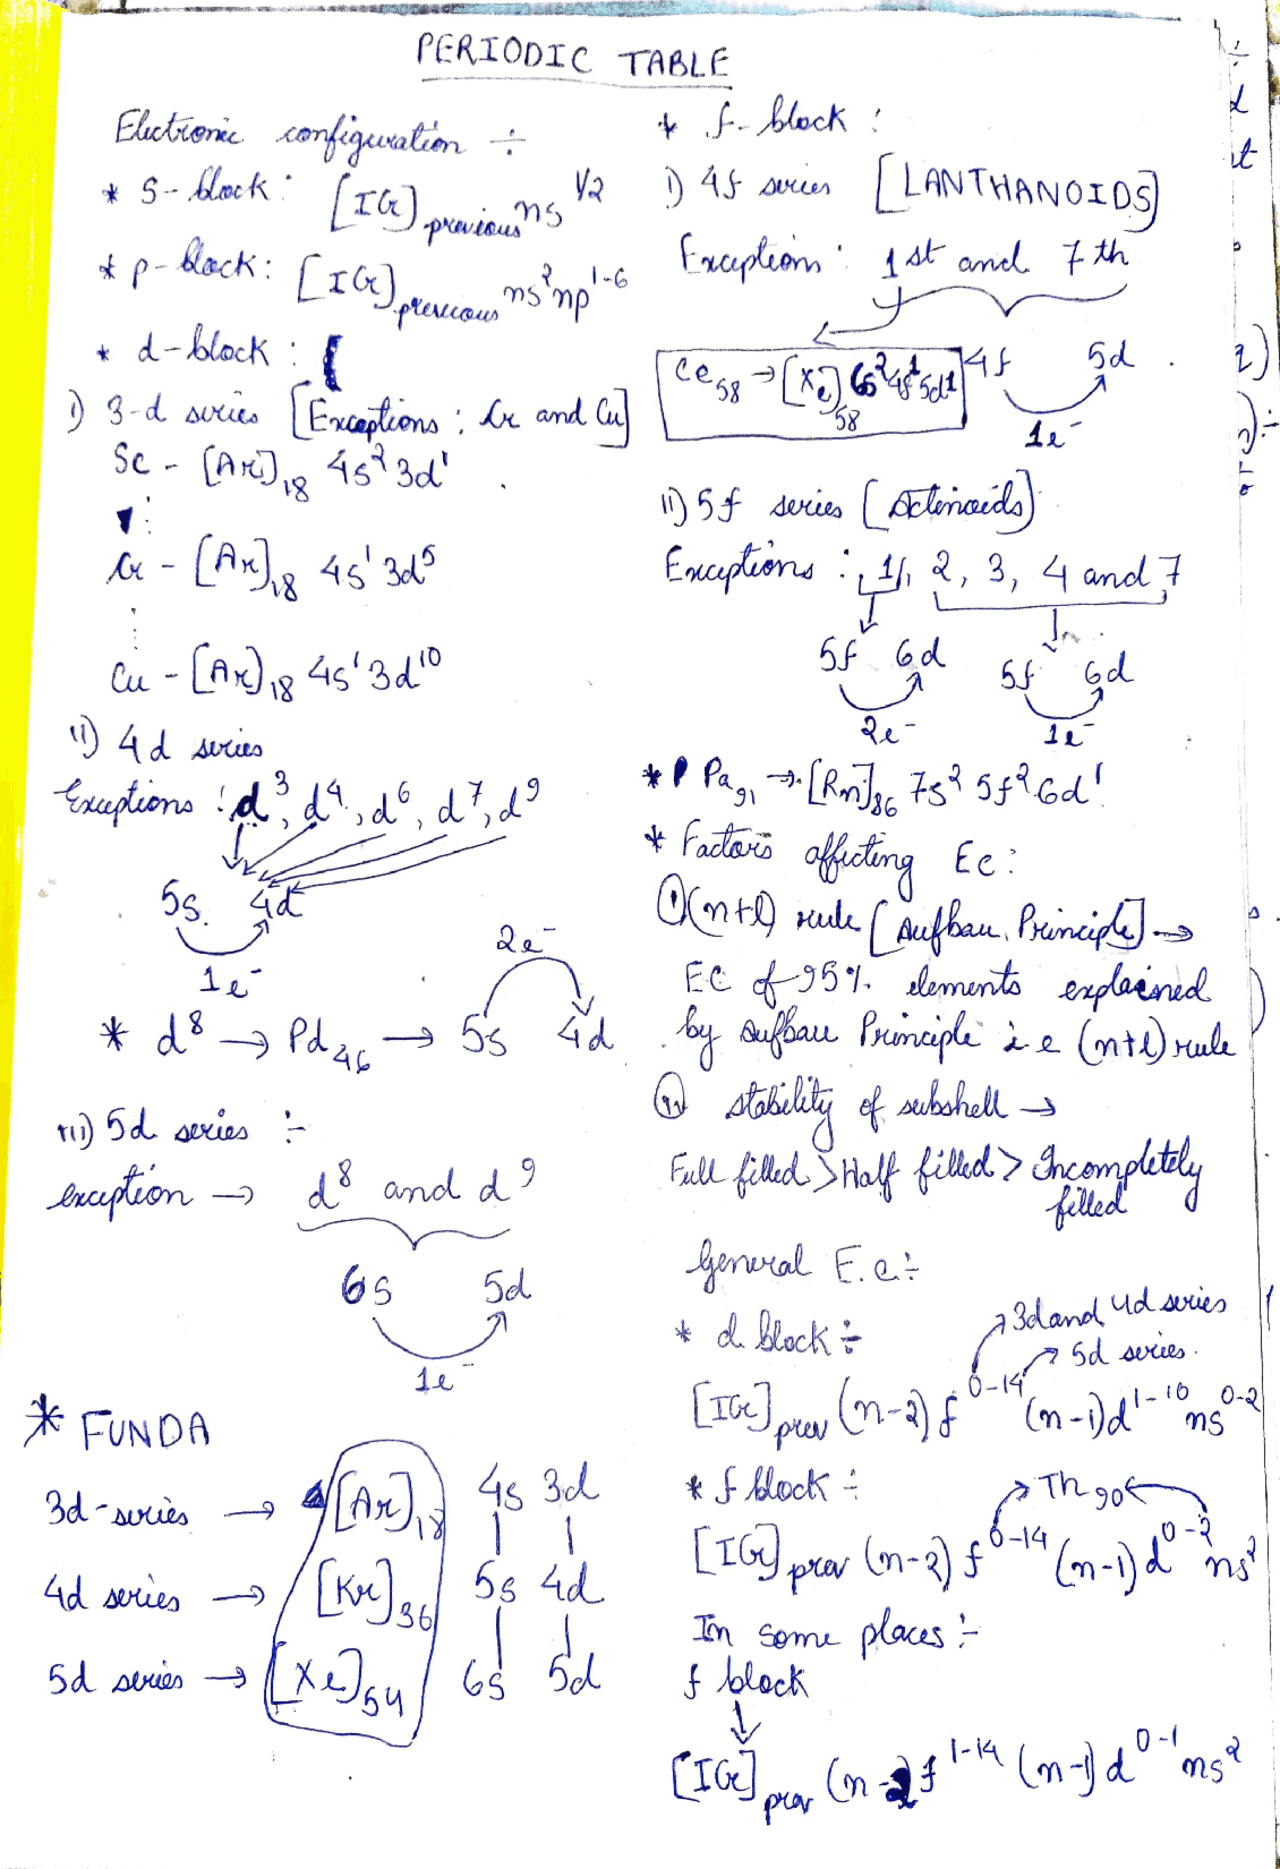 PERIODIC TABLE
Electronic configuration ÷
* S-block: [IG]previous ns 1/2
* p-block: [IG]previous ns² np¹⁻⁶
* d-block :
i) 3-d series [Exceptions : Cr and Cu]
Sc - [Ar]₁₈ 4s² 3d¹
Cr - [Ar]₁₈ 4s¹ 3d⁵
Cu - [Ar]₁₈ 4s¹ 3d¹⁰
ii) 4d series
Exceptions : d³, d⁴, d⁶, d⁷, d⁹
5s 4d
1e⁻
2e⁻
* d⁸ → Pd₄₆ → 5s 4d
iii) 5d series ÷
exception → d⁸ and d⁹
6s 5d
1e⁻
* FUNDA
3d-series → [Ar]₁₈ 4s 3d
4d series → [Kr]₃₆ 5s 4d
5d series → [Xe]₅₄ 6s 5d
* f-block :
i) 4f series [LANTHANOIDS]
Exceptions : 1st and 7th
Ce₅₈ → [Xe]₅₈ 6s² 4f¹ 5d¹
4f 5d
1e⁻
ii) 5f series [Actinoids]
Exceptions : 1, 2, 3, 4 and 7
5f 6d 5f 6d
2e⁻ 1e⁻
* Pa₉₁ → [Rn]₈₆ 7s² 5f² 6d¹
* Factors affecting Ec :
① (n+l) rule [Aufbau Principle] →
EC of 95% elements explained
by Aufbau Principle i e (n+l) rule
ii stability of subshell →
Full filled > Half filled > Incompletely
filled
General E.C ÷
* d block ÷ → 3d and 4d series
→ 5d series.
[IG]prev (n-2) f⁰⁻¹⁴ (n-1)d¹⁻¹⁰ ns⁰⁻²
* f block ÷ → Th₉₀ ←
[IG]prev (n-2) f⁰⁻¹⁴ (n-1) d⁰⁻² ns²
In some places :-
f block
↓
[IG]prev (n-2 f¹⁻¹⁴ (n-1) d⁰⁻¹ ns²